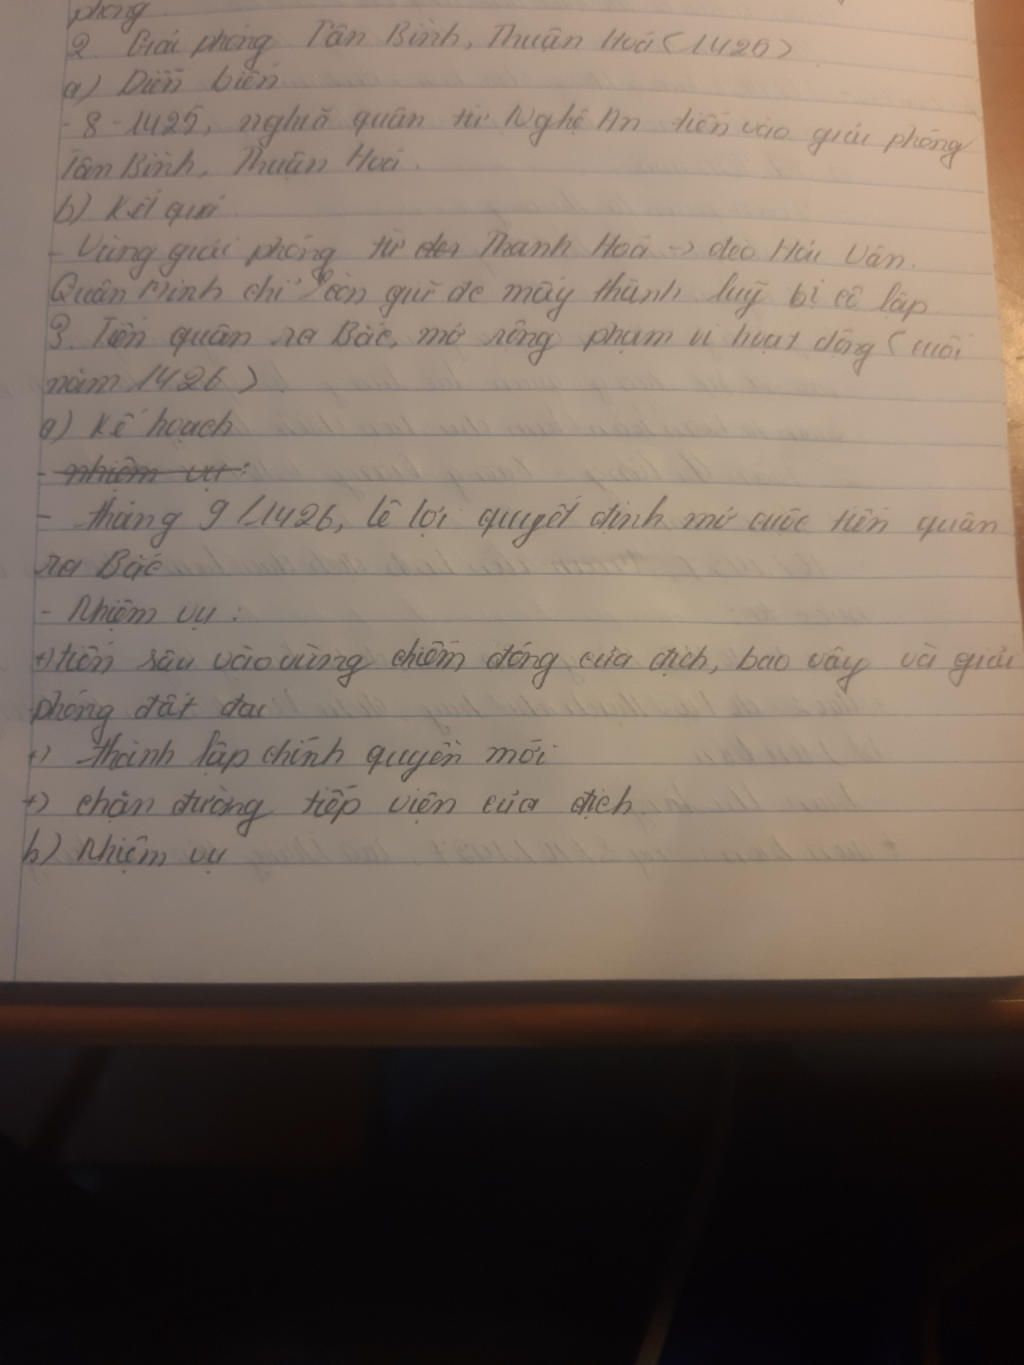 phóng
2. Giải phóng Tân Bình, Thuận Hoá (1425)
a) Diễn biến
- 8-1425, nghĩa quân từ Nghệ An tiến vào giải phóng
Tân Bình, Thuận Hoá.
b) Kết quả
- Vùng giải phóng từ Thanh Hoá -> đèo Hải Vân.
Quân Minh chỉ còn giữ đc mấy thành luỹ bị cô lập
3. Tiến quân ra Bắc, mở rộng phạm vi hoạt động (cuối
năm 1426)
a) Kế hoạch
- nhiệm vụ:
- tháng 9/1426, Lê lợi quyết định mở cuộc tiến quân
ra Bắc
- Nhiệm vụ:
+) tiến sâu vào vùng chiếm đóng của địch, bao vây và giải
phóng đất đai
+) thành lập chính quyền mới
+) chặn đường tiếp viện của địch
b) Nhiệm vụ